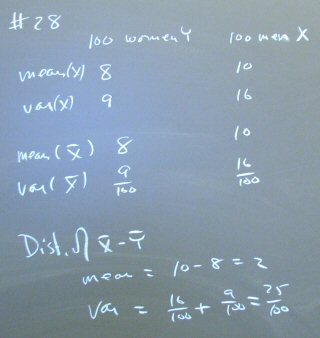 # 28
100 women Y 100 men X
mean(x) 8 10
var(x) 9 16
mean(x̄) 8 10
var(x̄) 9/100 16/100
Dist. of x̄ - ȳ
mean = 10 - 8 = 2
Var = 16/100 + 9/100 = 25/100